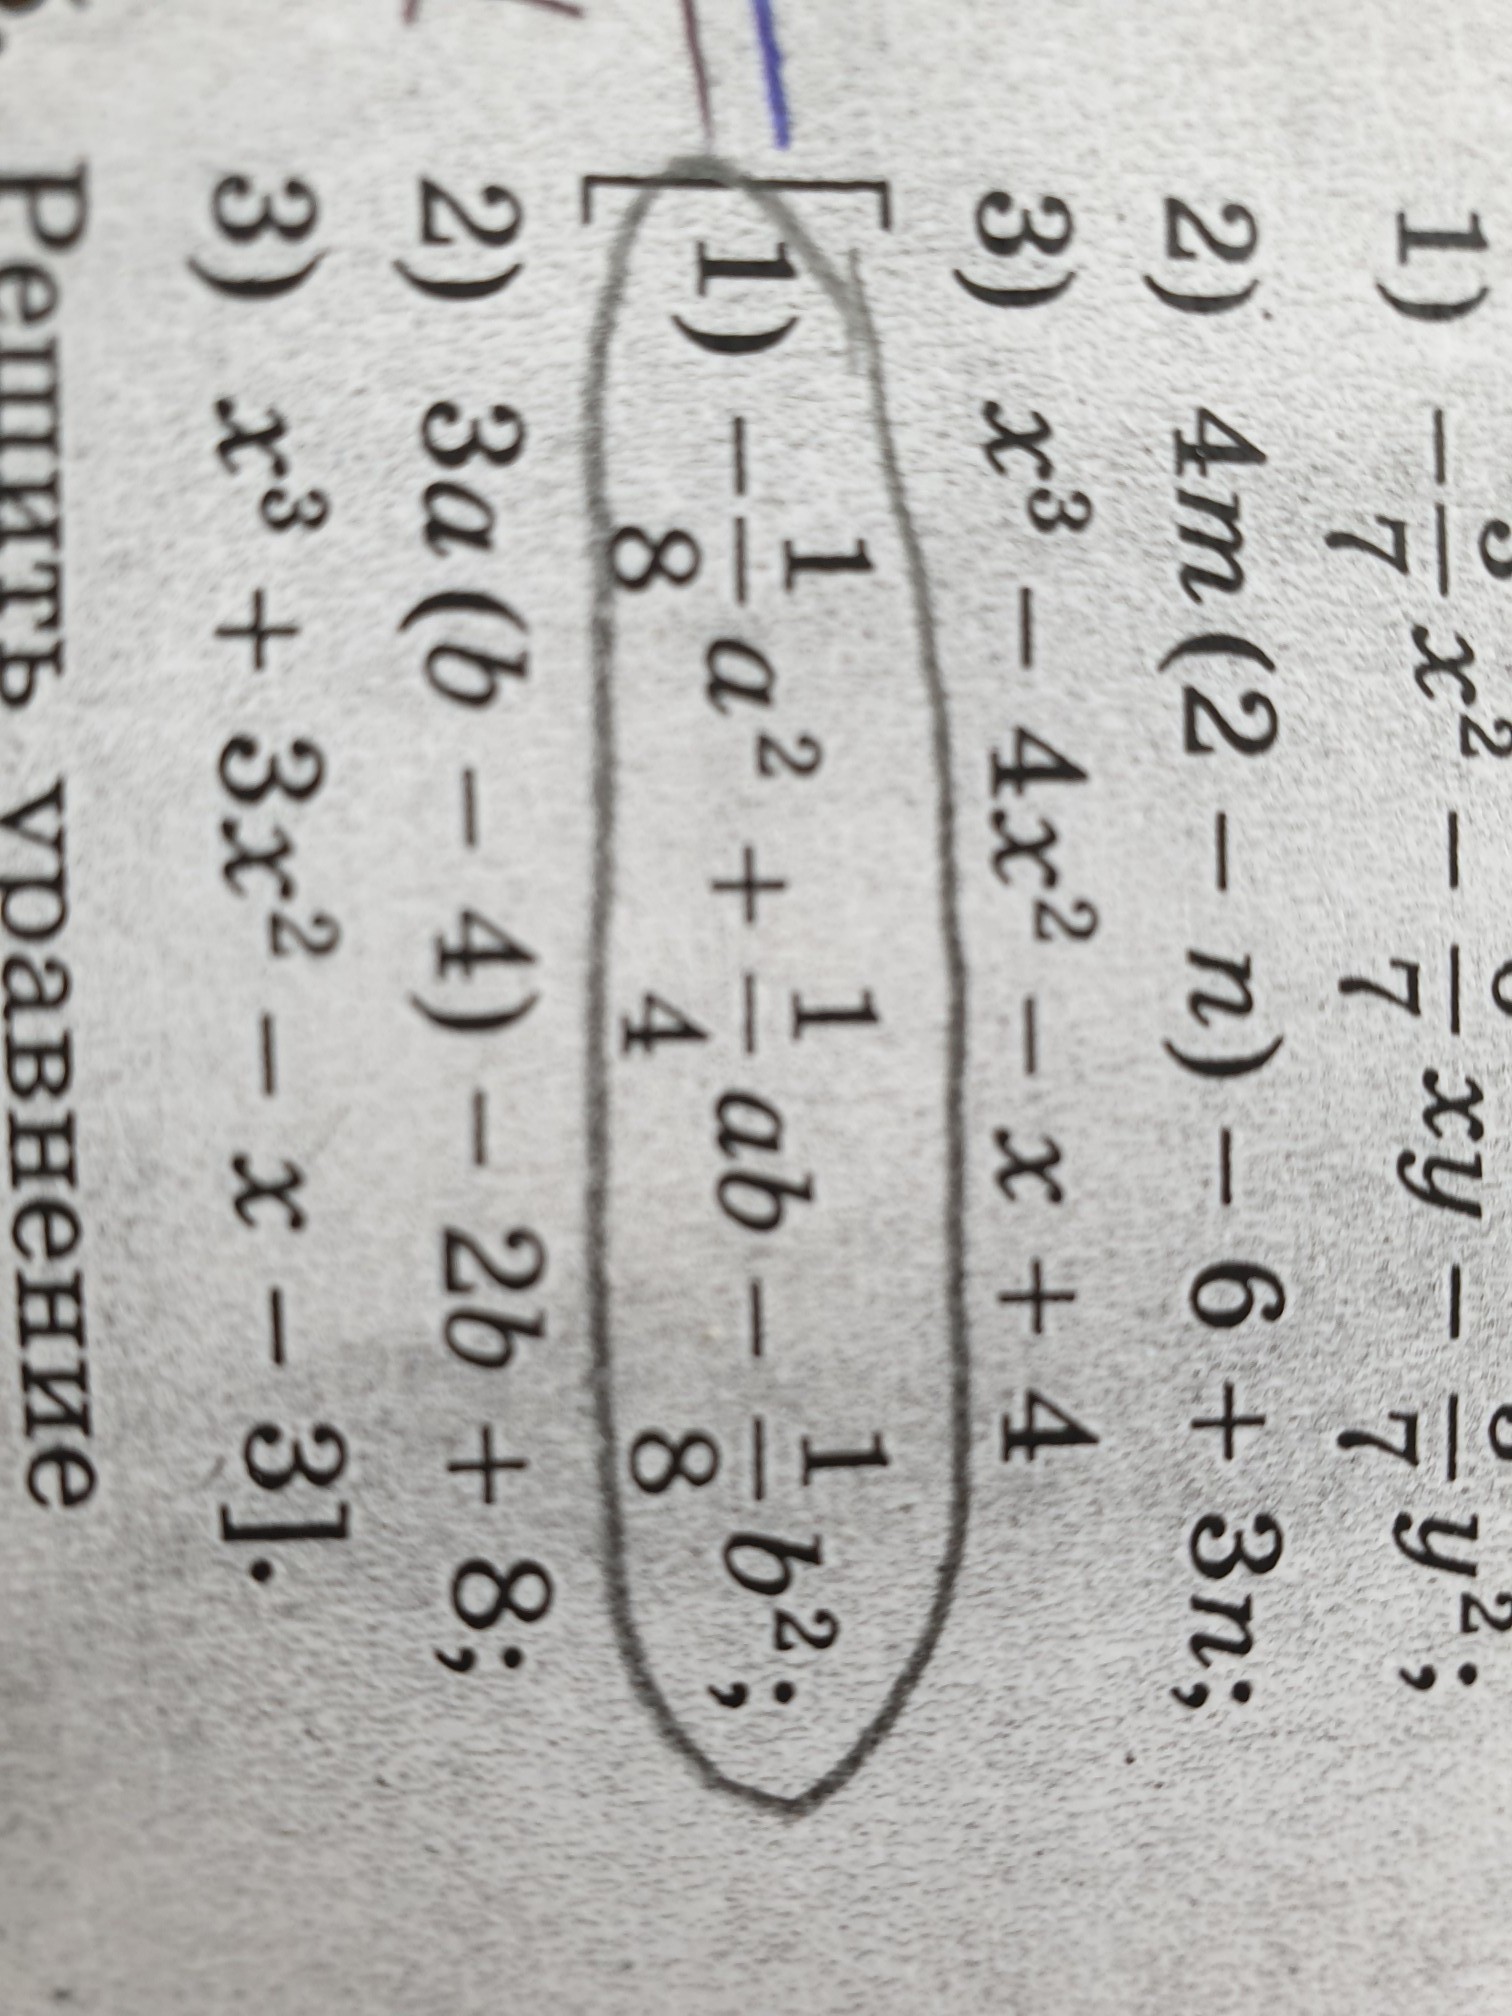 1) −/7 x² − /7 xy − /7 y²;
2) 4m(2 − n) − 6 + 3n;
3) x³ − 4x² − x + 4
[1) −1/8 a² + 1/4 ab − 1/8 b²;
2) 3a(b − 4) − 2b + 8;
3) x³ + 3x² − x − 3].
Решить уравнение